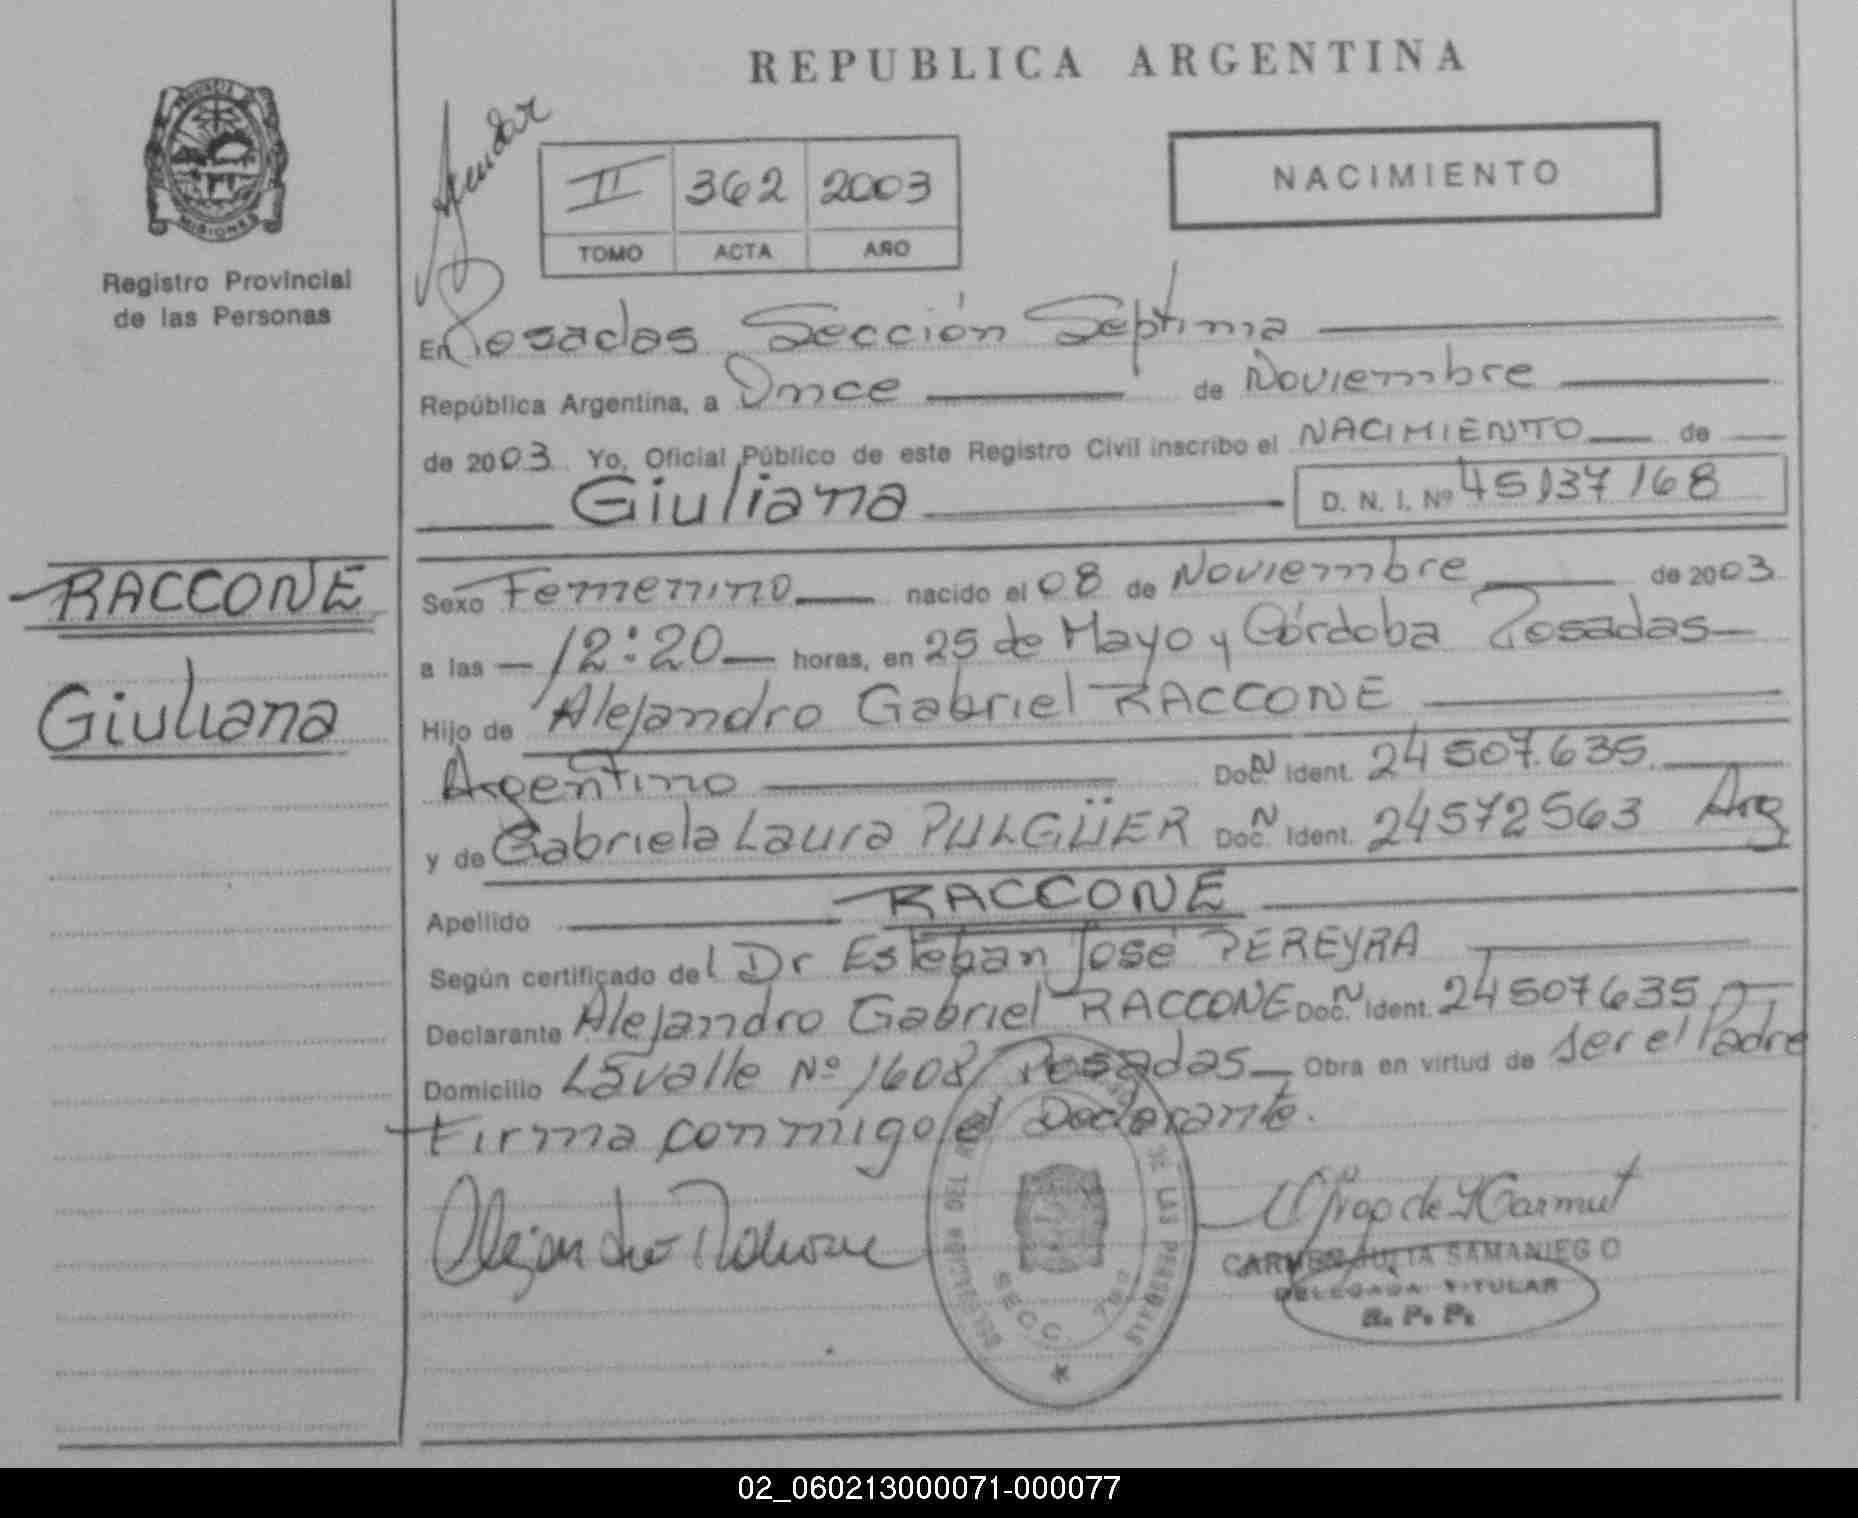 REPUBLICA ARGENTINA
PROVINCIA DE
MISIONES
Registro Provincial
de las Personas
II 362 2003
TOMO ACTA AÑO
NACIMIENTO
En Posadas Sección Septima
República Argentina, a Once de Noviembre
de 2003 Yo, Oficial Público de este Registro Civil inscribo el NACIMIENTO de
Giuliana D. N. I. Nº 45137168
RACCONE
Giuliana
Sexo Femenino nacido el 08 de Noviembre de 2003
a las 12:20 horas, en 25 de Mayo y Córdoba Posadas
Hijo de Alejandro Gabriel RACCONE
Argentino Doc. N Ident. 24507.635
y de Gabriela Laura PULGÜER Doc. N Ident. 24572563 Arg
Apellido RACCONE
Según certificado del Dr Esteban José PEREYRA
Declarante Alejandro Gabriel RACCONE Doc. N Ident. 24507635
Domicilio Lavalle Nº 1608 Posadas Obra en virtud de ser el Padre
Firma conmigo el Declarante.
Alejandro Raccone
DE LAS PERSONAS
SECC. 7ma
CARMEN JULIA SAMANIEGO
DELEGADA TITULAR
R. P. P.
02_060213000071-000077